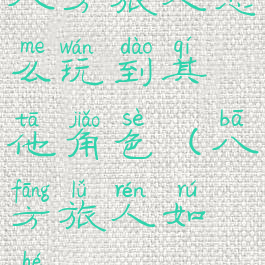 me wán dào qí
么玩到其
tā jiǎo sè bā
他角色（八
fāng lǚ rén rú
方旅人如
hé